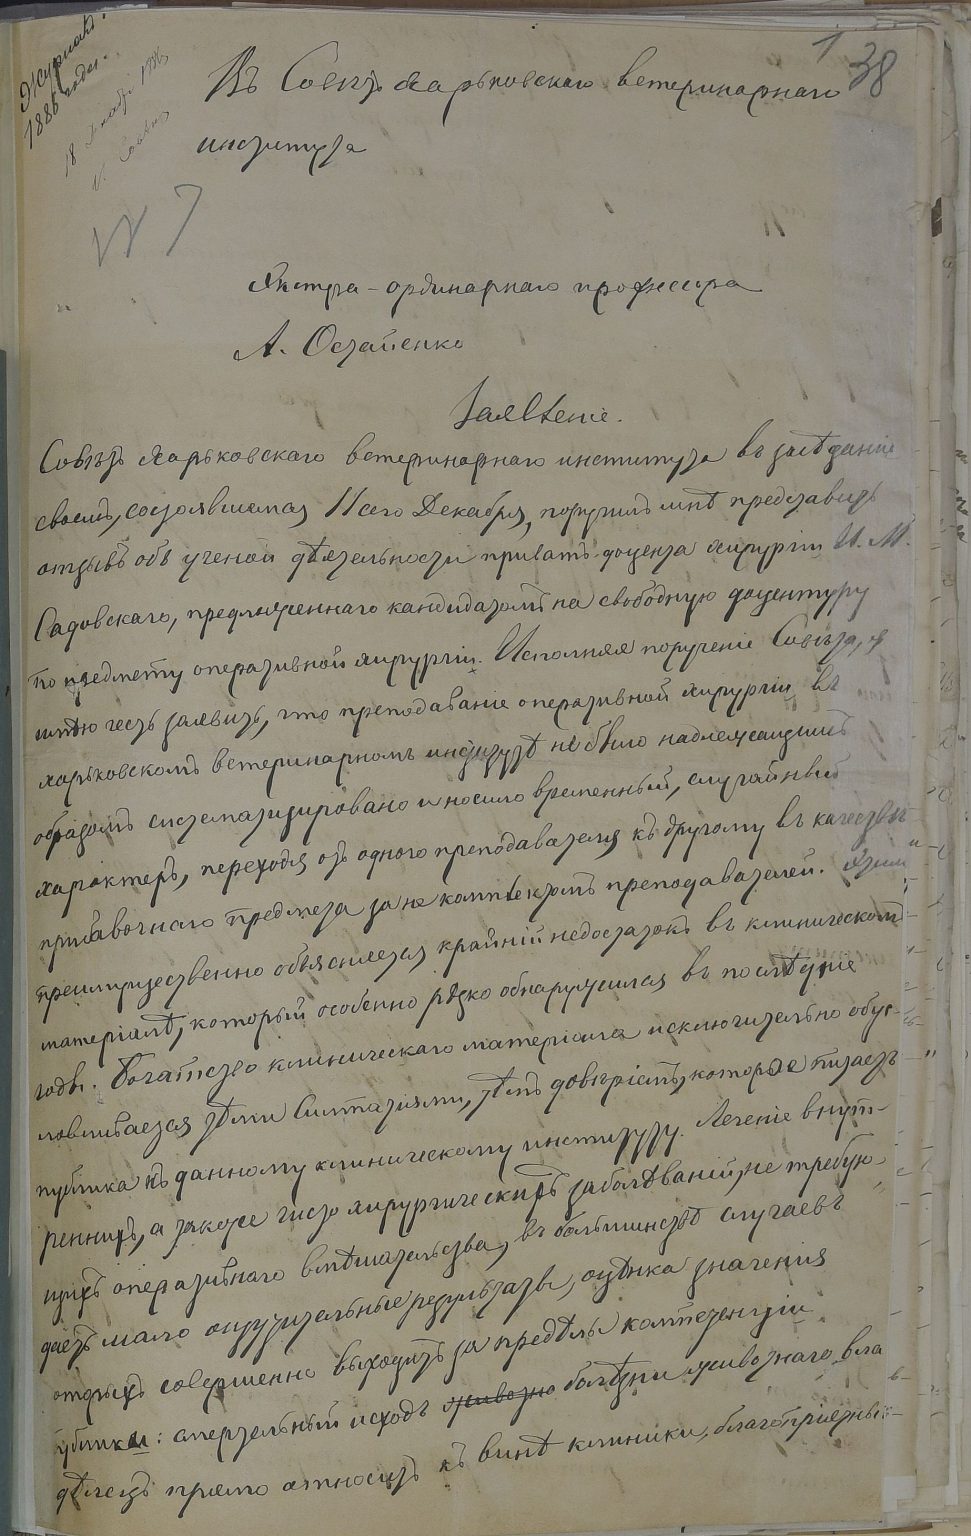 Журналъ
1886 года.
18 1886
1 38
Въ Совѣтъ Харьковскаго ветеринарнаго
института
№ 7
Экстра-ординарнаго профессора
А. Остапенко
Заявленіе.
Совѣтъ Харьковскаго ветеринарнаго института въ засѣданіи
своемъ, состоявшемся 11 сего Декабря, поручилъ мнѣ представить
отзывъ объ ученой дѣятельности приватъ-доцента хирургіи И. М.
Садовскаго, предложеннаго кандидатомъ на свободную доцентуру
по предмету оперативной хирургіи. Исполняя порученіе Совѣта, я
имѣю честь заявить, что преподаваніе оперативной хирургіи въ
харьковскомъ ветеринарномъ институтѣ не было надлежащимъ
образомъ систематизировано и носило временный, случайный
характеръ, переходя отъ одного преподавателя къ другому въ качествѣ
прибавочнаго предмета за не комплектомъ преподавателей. Этимъ
преимущественно объясняется крайній недостатокъ въ клиническомъ
матеріалѣ, который особенно рѣзко обнаружился въ послѣдніе
годы. Богатство клиническаго матеріала исключительно обус-
ловливается тѣми симпатіями, тѣмъ довѣріемъ, которые питаетъ
публика къ данному клиническому институту. Леченіе внут-
реннихъ, а также чисто хирургическихъ заболѣваній, не требую-
щихъ оперативнаго вмѣшательства, въ большинствѣ случаевъ
даетъ мало ощутительные результаты, оцѣнка значенія
оторыхъ совершенно выходитъ за предѣлы компетенціи
ублики: смертельный исходъ животно болѣзни животнаго вла
дѣлецъ прямо относитъ къ винѣ клиники, благопріятный